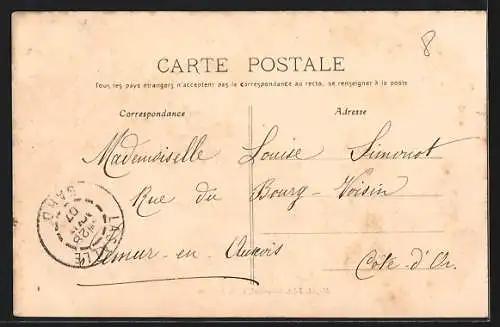 8
CARTE POSTALE
Tous les pays étrangers n'acceptent pas la correspondance au recto, se renseigner à la poste
Correspondance
Adresse
Mademoiselle Louise Simonot
Rue du Bourg-Voisin
Semur-en-Auxois
Côte-d'Or.
LASALLE
GARD
28
07